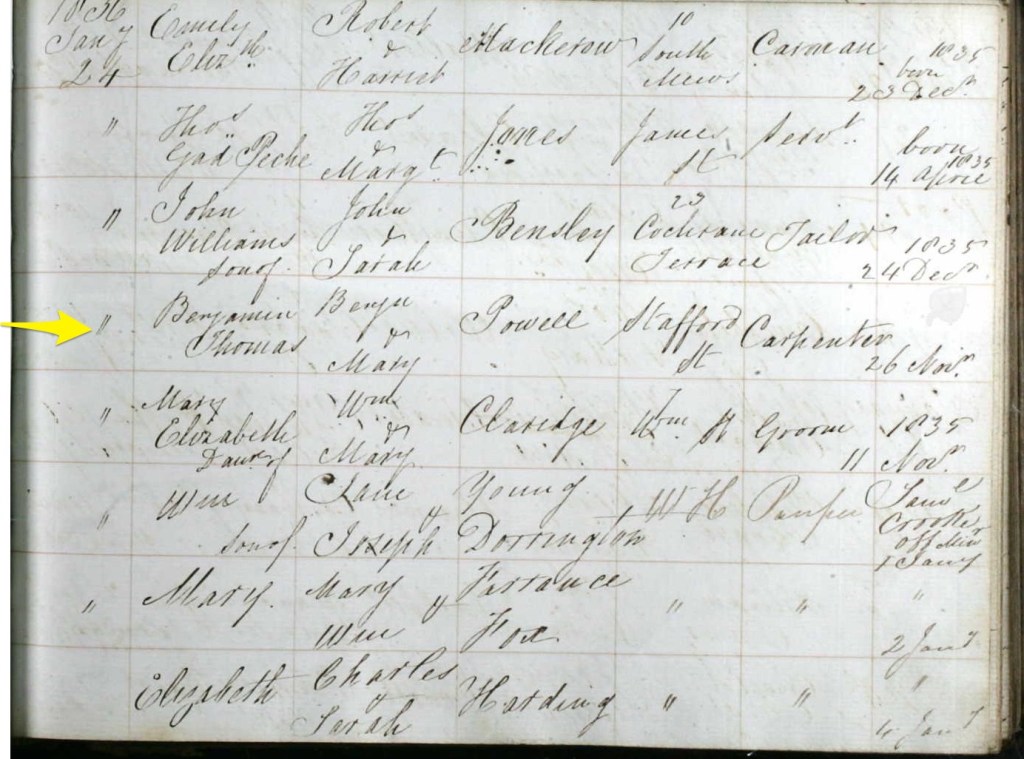 1836 Emily Robert 10
Jany Elizth & Mackerow South Carman 1835
24 Harriet Mews born
23 Decr
" Thos Thos Jones James Servt born
Gad Peche & St 1835
Margt 14 April
" John John 23
Williams & Bensley Cochrane Tailor 1835
son of Sarah Terrace 24 Decr
" Benjamin Benjn Powell Stafford Carpenter
Thomas & St 26 Novr
Mary
" Mary Wm 7
Elizabeth & Claridge Wm St Groom 1835
Daur of Mary 11 Novr
" Wm Jane Young W H Pauper Saml
& Crooke
son of Joseph Dorrington off Min
1 Jany
" Mary Mary & Farrance " " "
Wm Fox 2 Jany
Elizabeth Charles "
& Harding " "
Sarah 4 Jany